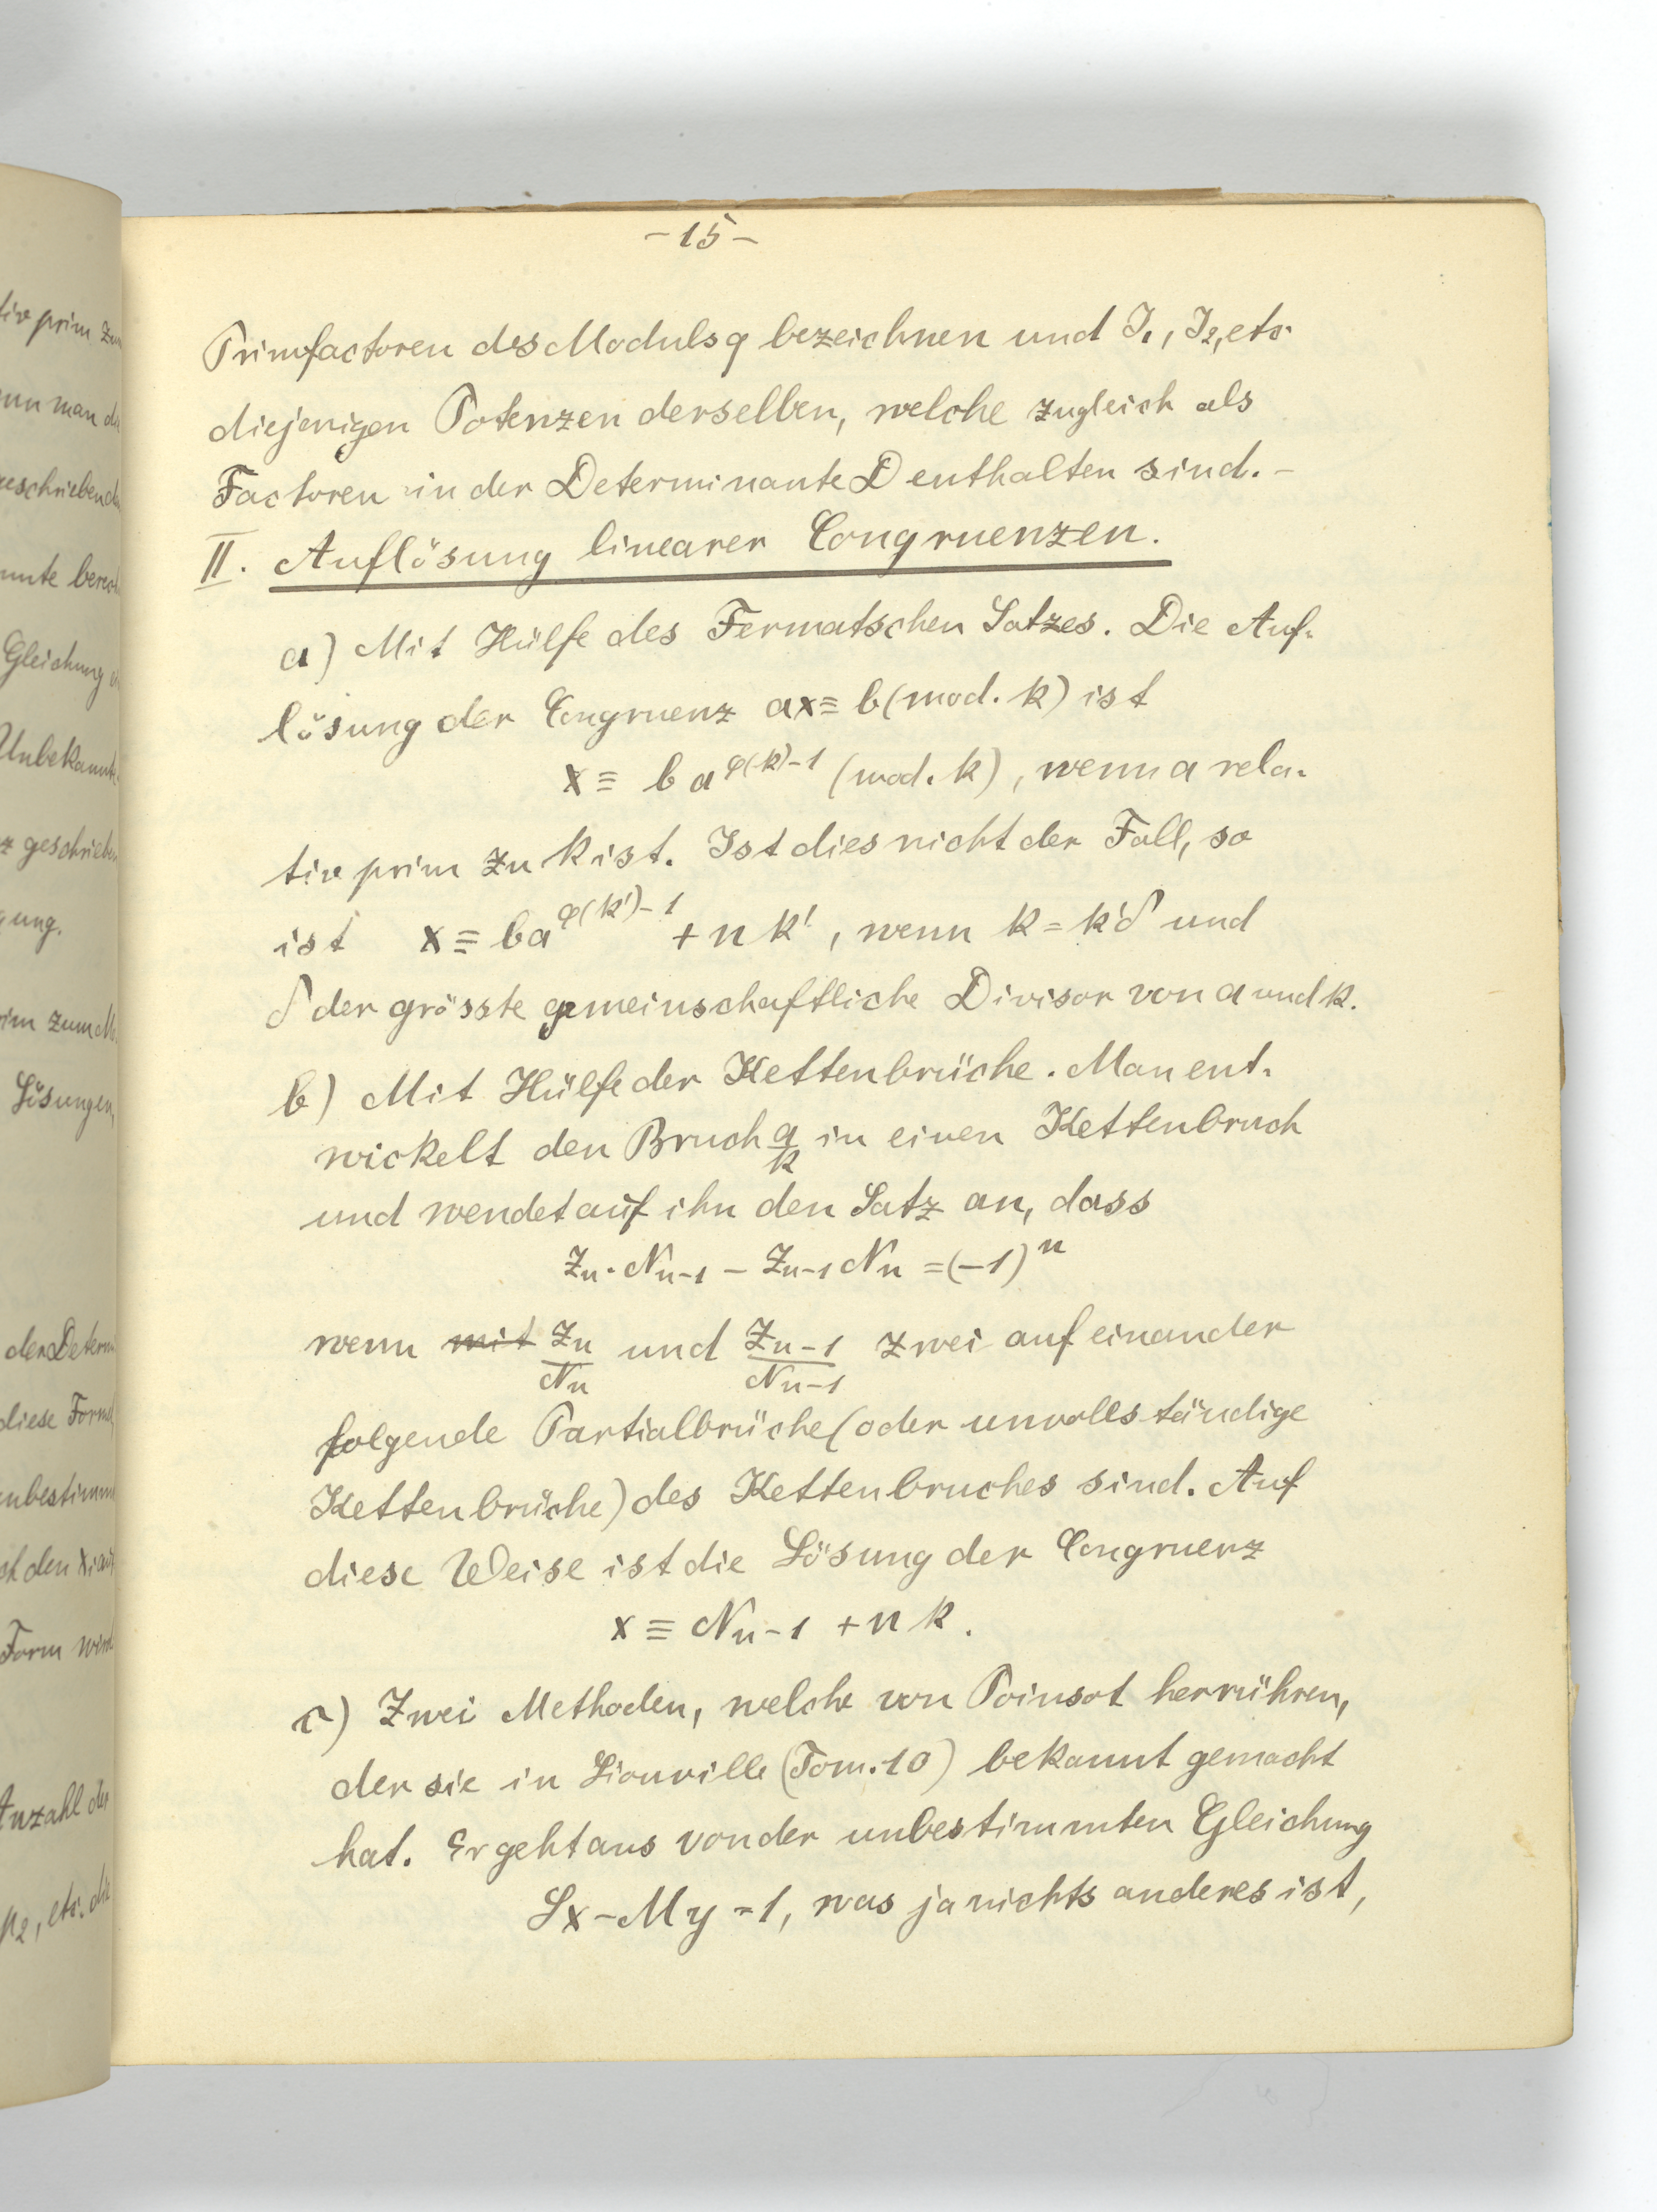 -15-
Primfactoren des Moduls q bezeichnen und J₁, J₂, etc.
diejenigen Potenzen derselben, welche zugleich als
Factoren in der Determinante D enthalten sind. -
II. Auflösung linearer Congruenzen.
a) Mit Hülfe des Fermatschen Satzes. Die Auf-
lösung der Congruenz ax ≡ b (mod. k) ist
x ≡ b a^φ(k)-1 (mod. k), wenn a rela-
tiv prim zu k ist. Ist dies nicht der Fall, so
ist x ≡ ba^φ(k')-1 + n k', wenn k = k'δ und
δ der grösste gemeinschaftliche Divisor von a und k.
b) Mit Hülfe der Kettenbrüche. Man ent-
wickelt den Bruch a/k in einen Kettenbruch
und wendet auf ihn den Satz an, dass
Zn . Nn-1 - Zn-1 Nn = (-1)^n
wenn mit Zn/Nn und Zn-1/Nn-1 zwei auf einander
folgende Partialbrüche (oder unvollständige
Kettenbrüche) des Kettenbruches sind. Auf
diese Weise ist die Lösung der Congruenz
x ≡ Nn-1 + n k.
c) Zwei Methoden, welche von Poinsot herrühren,
der sie in Liouville (Tom. 10) bekannt gemacht
hat. Er geht aus von der unbestimmten Gleichung
Lx - My = 1, was ja nichts anderes ist,
tiv prim zu
man
geschrieben
Gleichung
Unbekannte
geschrieben
gung.
Lösungen,
der Determi
diese Form
unbestimm
Form wird
Anzahl der
p₂, etc. die